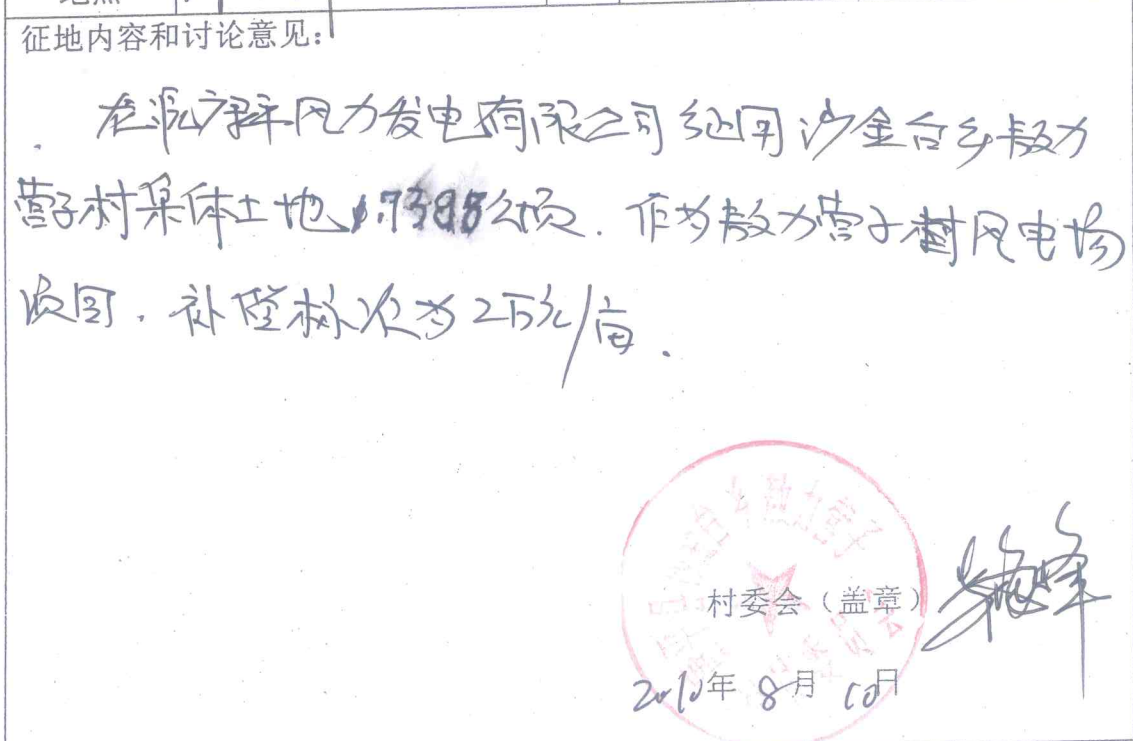 征地内容和讨论意见:
龙源康平风力发电有限公司征用沙金台乡敖力
营子村集体土地1.7398公顷. 作为敖力营子村风电场
项目. 补偿标准为2万元/亩.
台乡敖力营子
村委会（盖章）
2010年 8月 10日